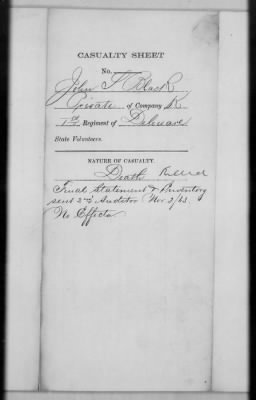 CASUALTY SHEET
No.
John F. Black
Private of Company K
1st Regiment of Delaware
State Volunteers.
NATURE OF CASUALTY.
Death Killed
Final Statement & Inventory
sent 2nd Auditor Nov. 2/63
No Effects